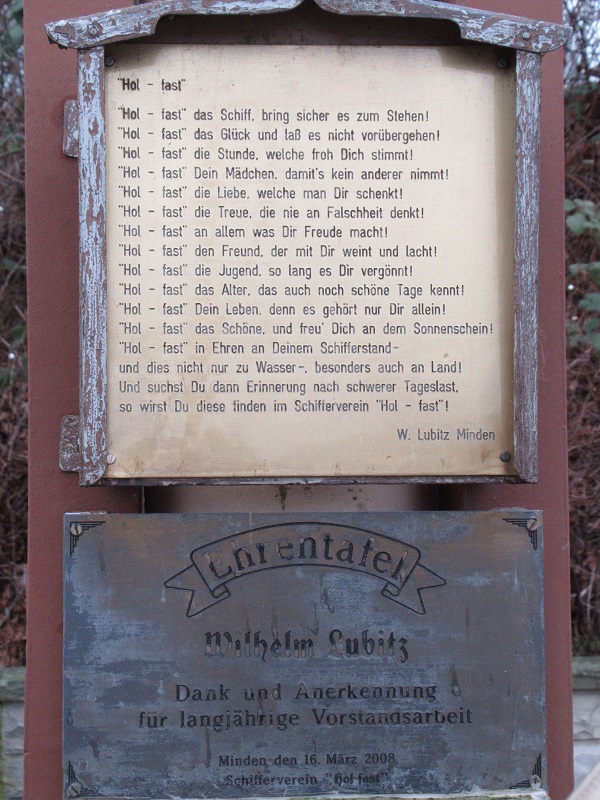 "Hol - fast"
"Hol - fast" das Schiff, bring sicher es zum Stehen!
"Hol - fast" das Glück und laß es nicht vorübergehen!
"Hol - fast" die Stunde, welche froh Dich stimmt!
"Hol - fast" Dein Mädchen, damit's kein anderer nimmt!
"Hol - fast" die Liebe, welche man Dir schenkt!
"Hol - fast" die Treue, die nie an Falschheit denkt!
"Hol - fast" an allem was Dir Freude macht!
"Hol - fast" den Freund, der mit Dir weint und lacht!
"Hol - fast" die Jugend, so lang es Dir vergönnt!
"Hol - fast" das Alter, das auch noch schöne Tage kennt!
"Hol - fast" Dein Leben, denn es gehört nur Dir allein!
"Hol - fast" das Schöne, und freu' Dich an dem Sonnenschein!
"Hol - fast" in Ehren an Deinem Schifferstand-
und dies nicht nur zu Wasser-, besonders auch an Land!
Und suchst Du dann Erinnerung nach schwerer Tageslast,
so wirst Du diese finden im Schifferverein "Hol - fast"!
W. Lubitz Minden
Ehrentafel
Wilhelm Lubitz
Dank und Anerkennung
für langjährige Vorstandsarbeit
Minden den 16. März 2008
Schifferverein "Hol fast"